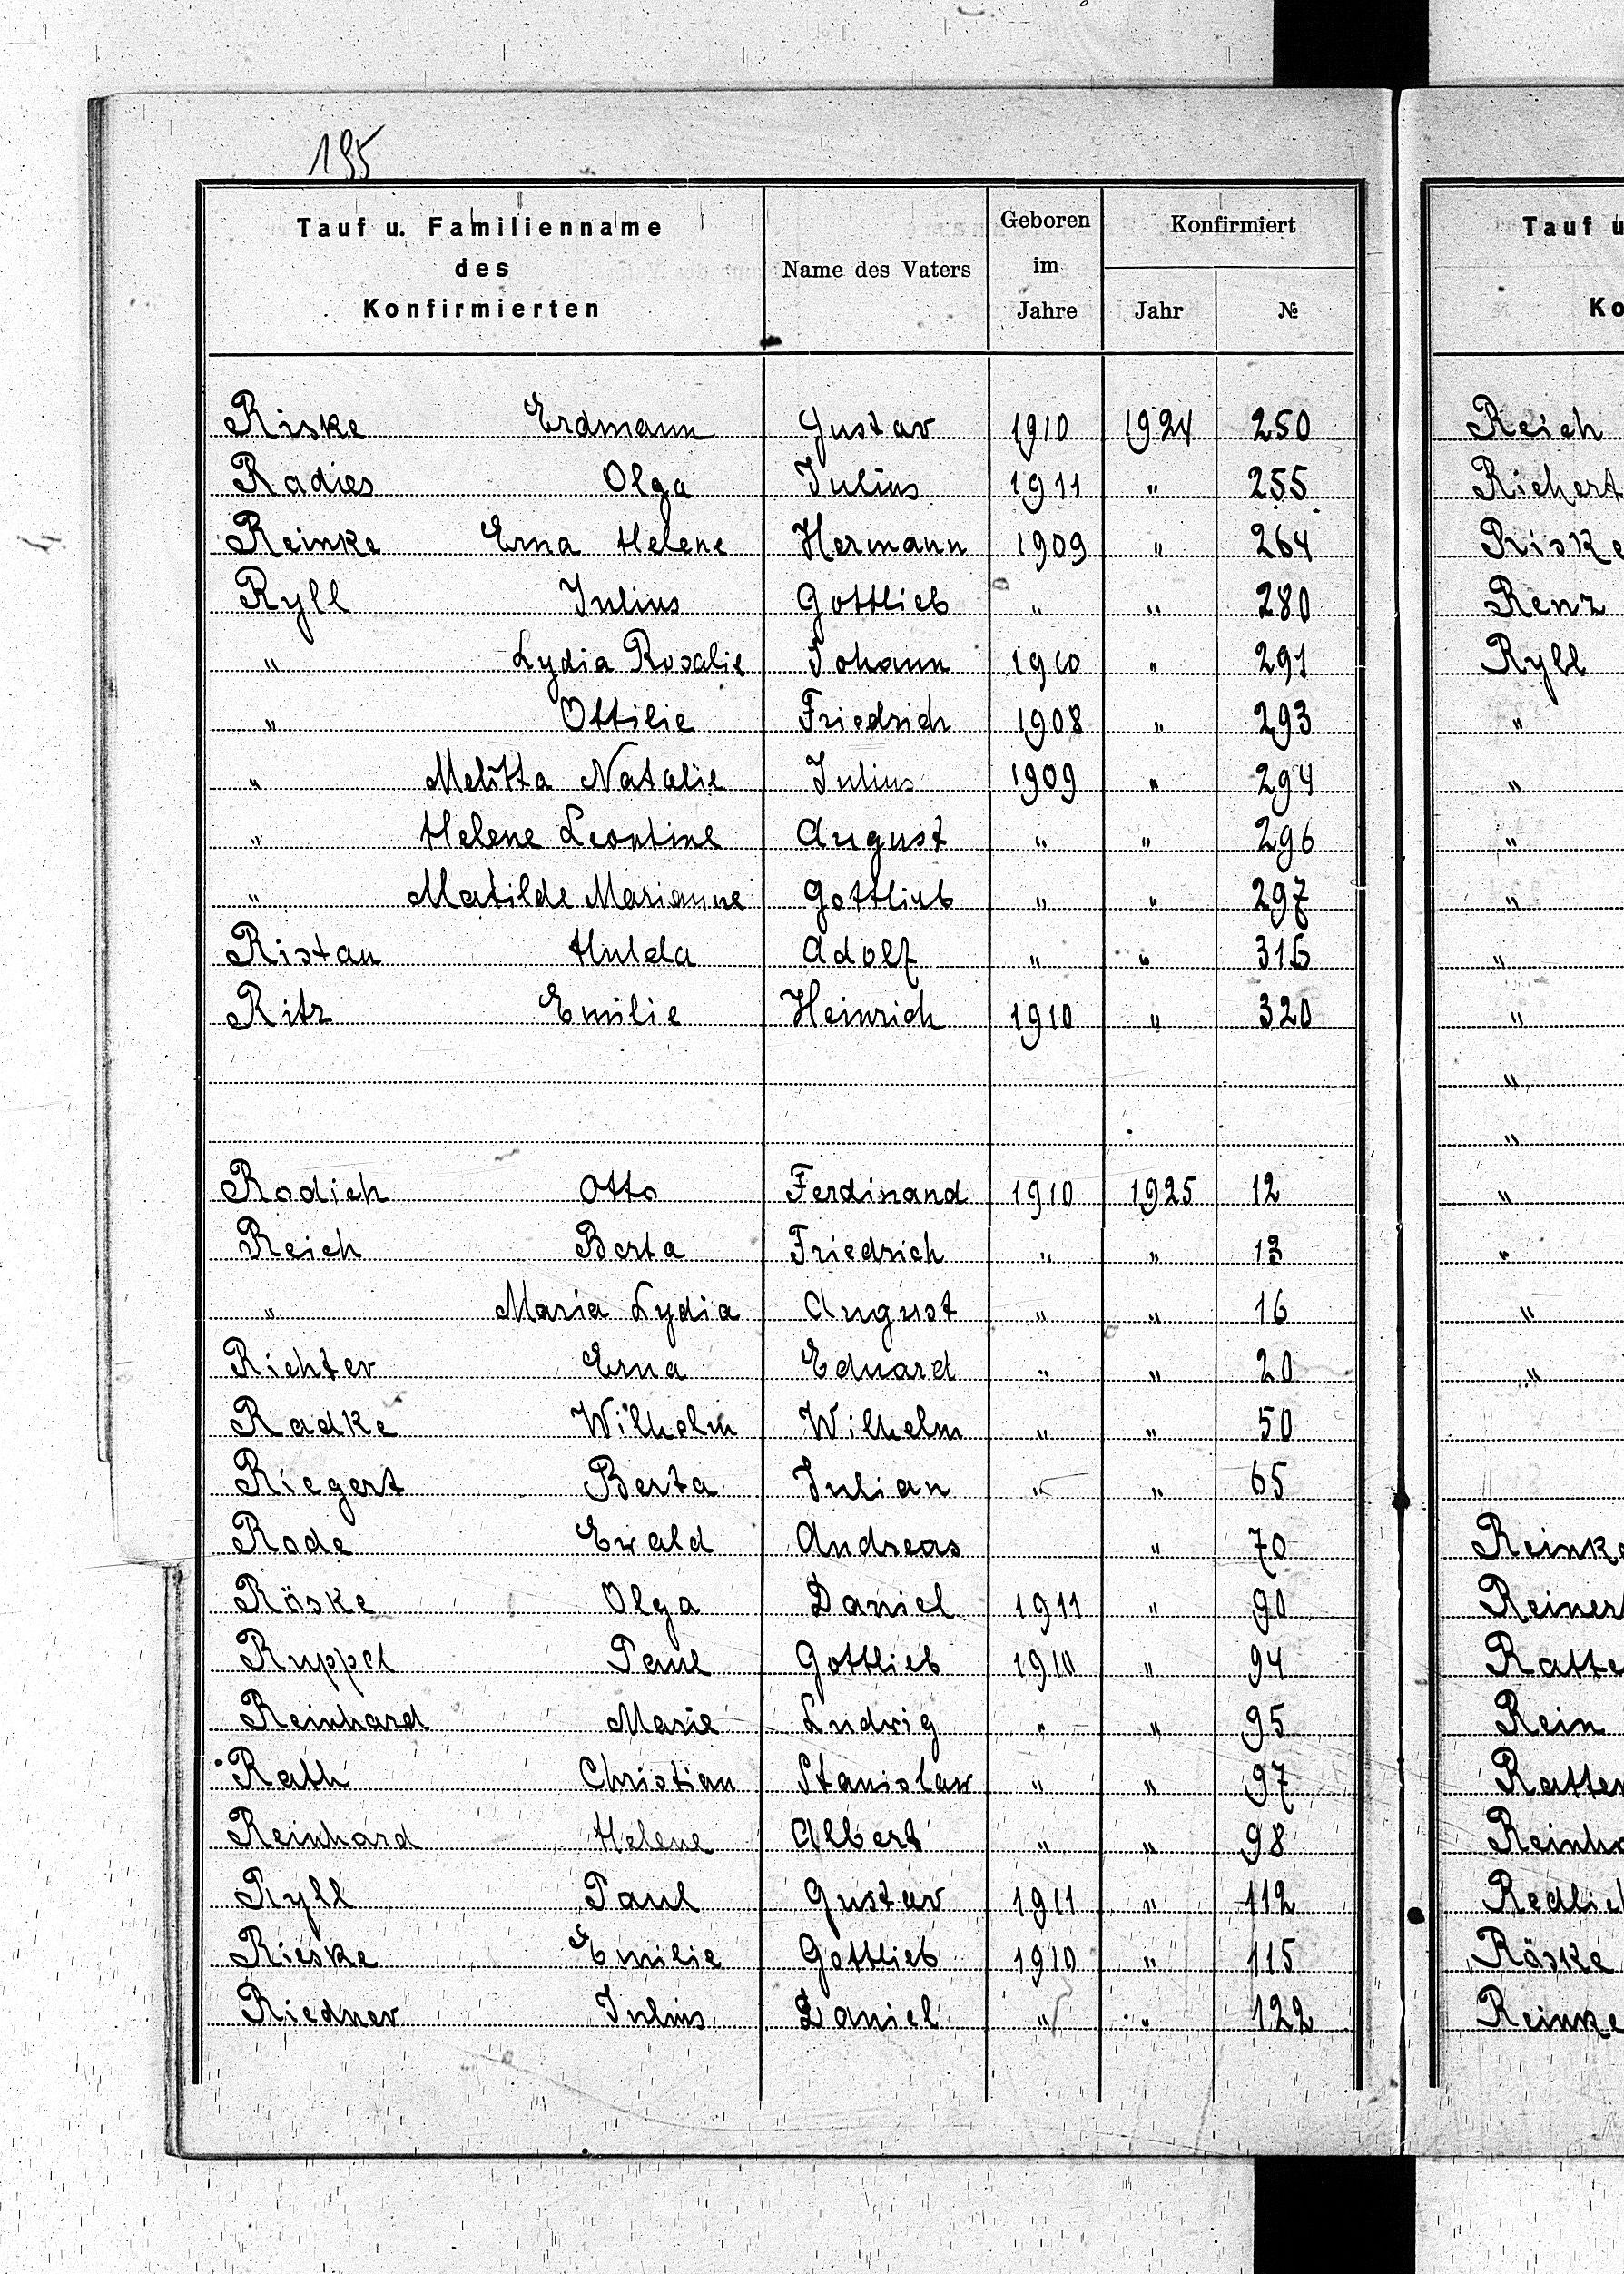 195
Tauf u. Familienname des Konfirmierten | Name des Vaters | Geboren im Jahre | Konfirmiert Jahr | №
Riske Erdmann Gustav 1910 1924 250
Radies Olga Julius 1911 " 255
Reinke Erna Helene Hermann 1909 " 264
Ryll Julius Gottlieb " " 280
" Lydia Rosalie Johann 1910 " 291
" Ottilie Friedrich 1908 " 293
" Melitta Natalie Julius 1909 " 294
" Helene Leontine August " " 296
" Matilde Marianne Gottlieb " " 297
Ristau Hulda Adolf " " 316
Ritz Emilie Heinrich 1910 " 320
Rodich Otto Ferdinand 1910 1925 12
Reich Berta Friedrich " " 13
" Maria Lydia August " " 16
Richter Erna Eduard " " 20
Radke Wilhelm Wilhelm " " 50
Riegert Berta Julian " " 65
Rode Ewald Andreas " 70
Röske Olga Daniel 1911 " 90
Ruppel Paul Gottlieb 1910 " 94
Reinhard Marie Ludwig " " 95
Rath Christian Stanislaw " " 97
Reinhard Helene Albert " " 98
Ryll Paul Gustav 1911 " 112
Rieske Emilie Gottlieb 1910 " 115
Riedner Julius Daniel " " 122
Tauf u
Ko
Reich
Richert
Riske
Renz
Ryll
"
"
"
"
"
"
"
"
"
"
"
"
Reinke
Reinert
Ratte
Rein
Ratten
Reinha
Redlich
Röske
Reinke